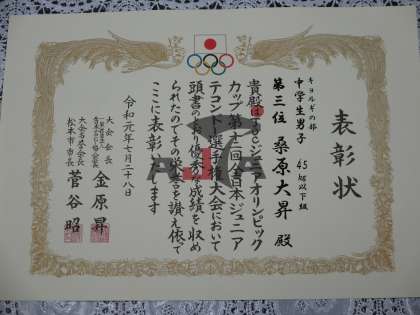 表彰状
キョルギの部
中学生男子 45kg以下級
第三位 桑原大昇 殿
貴殿はJOCジュニアオリンピック
カップ第十二回全日本ジュニア
テコンドー選手権大会において
頭書のとおり優秀な成績を収め
られたのでその栄誉を讃え依て
ここに表彰いたします
令和元年七月二十八日
大会会長
金原昇
大会名誉会長
松本市市長
菅谷昭